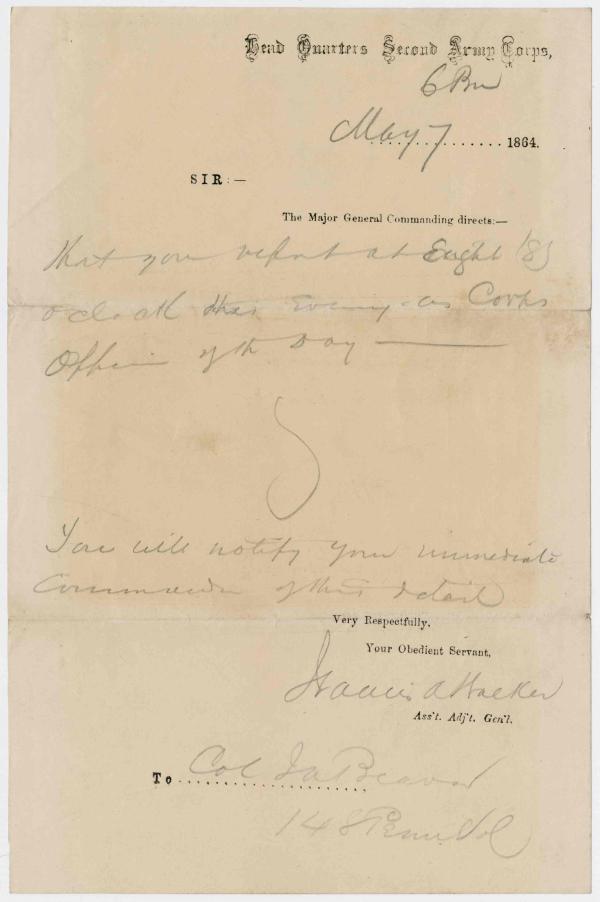 Head Quarters Second Army Corps,
6 Pm
May 7 1864.
SIR:—
The Major General Commanding directs:—
that you report at Eight (8)
o'clock this Evening as Corps
Officer of the Day —
You will notify your immediate
Commander of this detail
Very Respectfully,
Your Obedient Servant,
Francis A Walker
Ass't. Adj't. Gen'l.
To Col Ja Beaver
148 Penn Vol